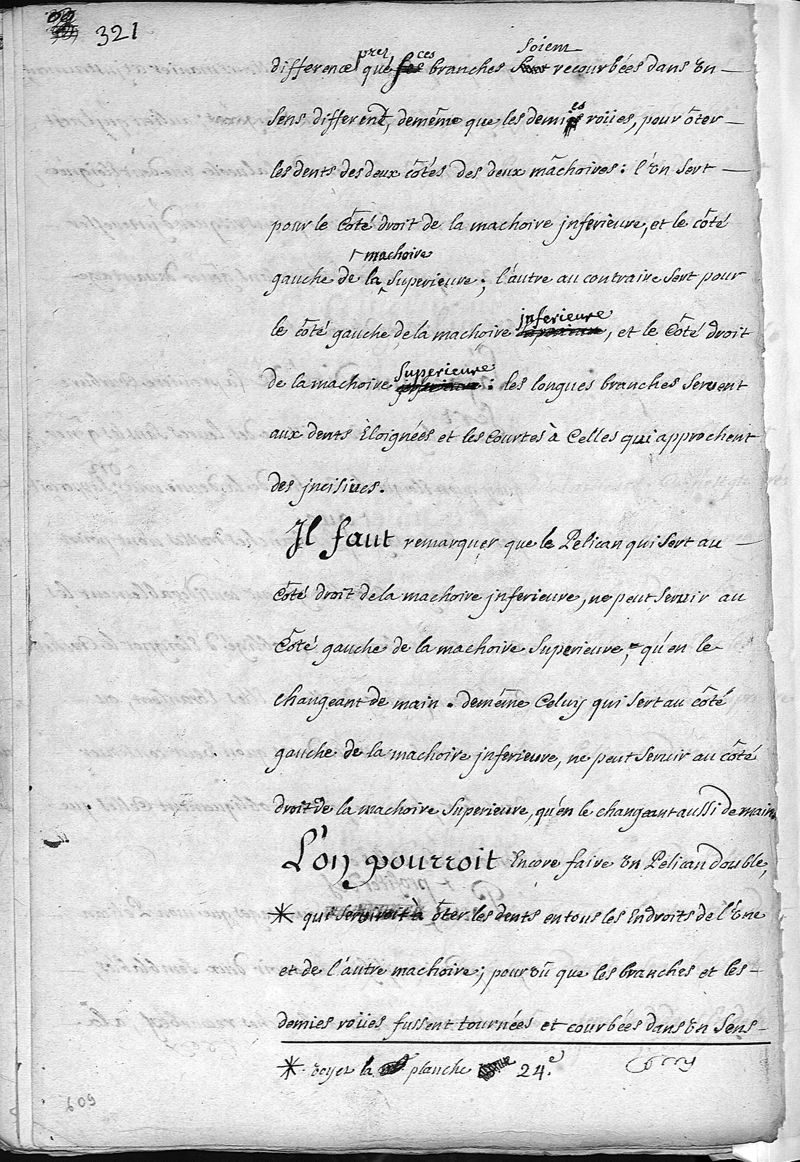 321
difference prez que ces branches soient recourbées dans un
sens different, demême que les demies roües, pour ôter
les dents des deux côtés des deux mâchoires: l'un sert
pour le Côté droit de la machoire inferieure, et le côté
gauche de la machoire Superieure; l'autre au contraire sert pour
le côté gauche de la machoire inferieure, et le Côté droit
de la machoire Superieure: les longues branches seruent
aux dents Eloignées et les Courtes à Celles qui approchent
des jncisiues.
Il faut remarquer que le Pelican qui sert au
Côté droit de la machoire jnferieure, ne peut seruir au
Côté gauche de la machoire Superieure, qu'en le
changeant de main. demême Celuy qui sert au côté
gauche de la machoire jnferieure, ne peut seruir au côté
droit de la machoire Superieure, qu'en le changeant aussi de main.
L'on pourroit Encore faire un Pelican double,
* qui seruiroit à ôter les dents en tous les Endroits de l'une
et de l'autre machoire; pourvû que les branches et les
demies roües fussent tournées et courbées dans un sens
* voyez la planche 24.e
609